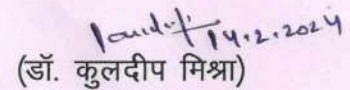 14.2.2024
(डॉ. कुलदीप मिश्रा)